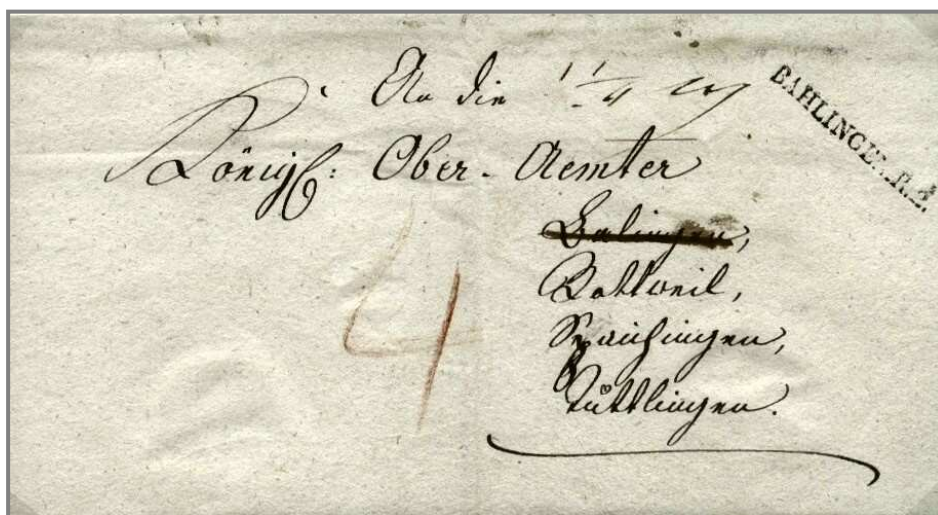 An die
BAHLINGEN.R.3.
Königl: Ober-Aemter
Balingen,
Rottweil,
Spaichingen,
Tuttlingen.
4